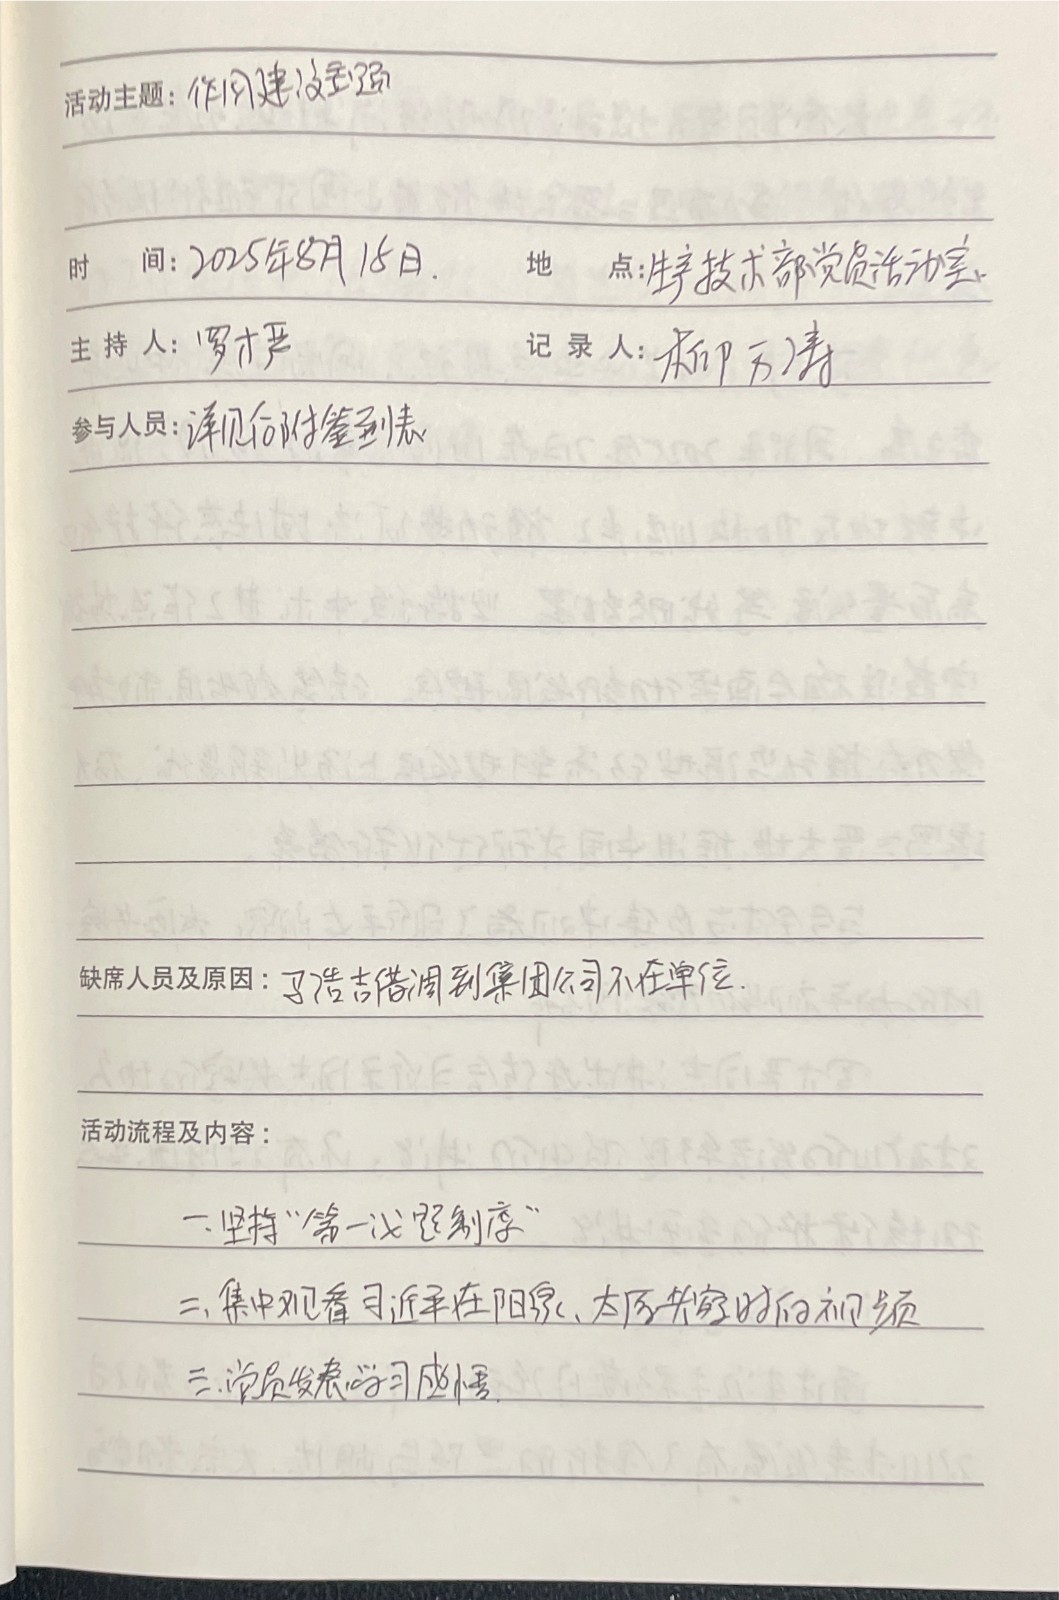 活动主题：作风建设至强
时 间：2025年8月15日.
地 点：生产技术部党员活动室.
主 持 人：罗才严
记 录 人：柳万涛
参与人员：详见后附签到表.
缺席人员及原因：浩吉借调到集团公司不在单位.
活动流程及内容：
一、坚持“第一议题制度”
二、集中观看习近平在阳泉、太原考察时的视频
三、党员发表学习感悟.